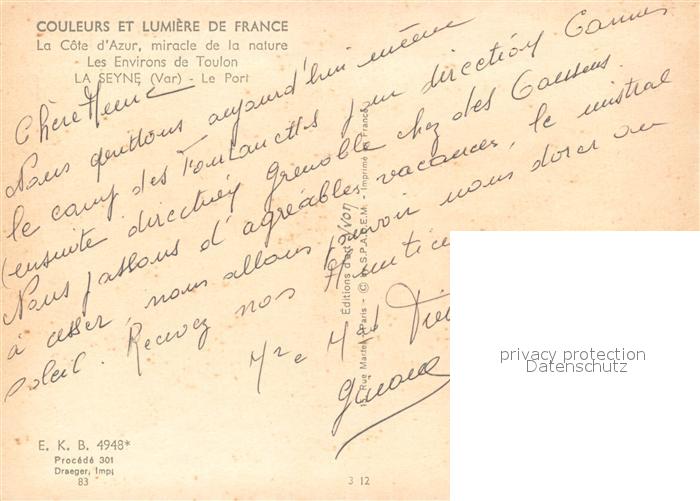 COULEURS ET LUMIÈRE DE FRANCE
La Côte d'Azur, miracle de la nature
Les Environs de Toulon
LA SEYNE (Var) - Le Port
Chère
Nous quittons aujourd'hui même
le camp des pour direction Cannes
(ensuite direction Grenoble chez des
Nous passons d'agréables vacances, le mistral
à cesser, nous allons pouvoir nous dorer au
soleil. Recevez nos
Mr e Md
Editions d'art YVON
Rue Martel, Paris - © by S.P.A.D.E.M. - Imprimé en France
E. K. B. 4948*
Procédé 301
Draeger, Imp.
83
3 12
privacy protection
Datenschutz